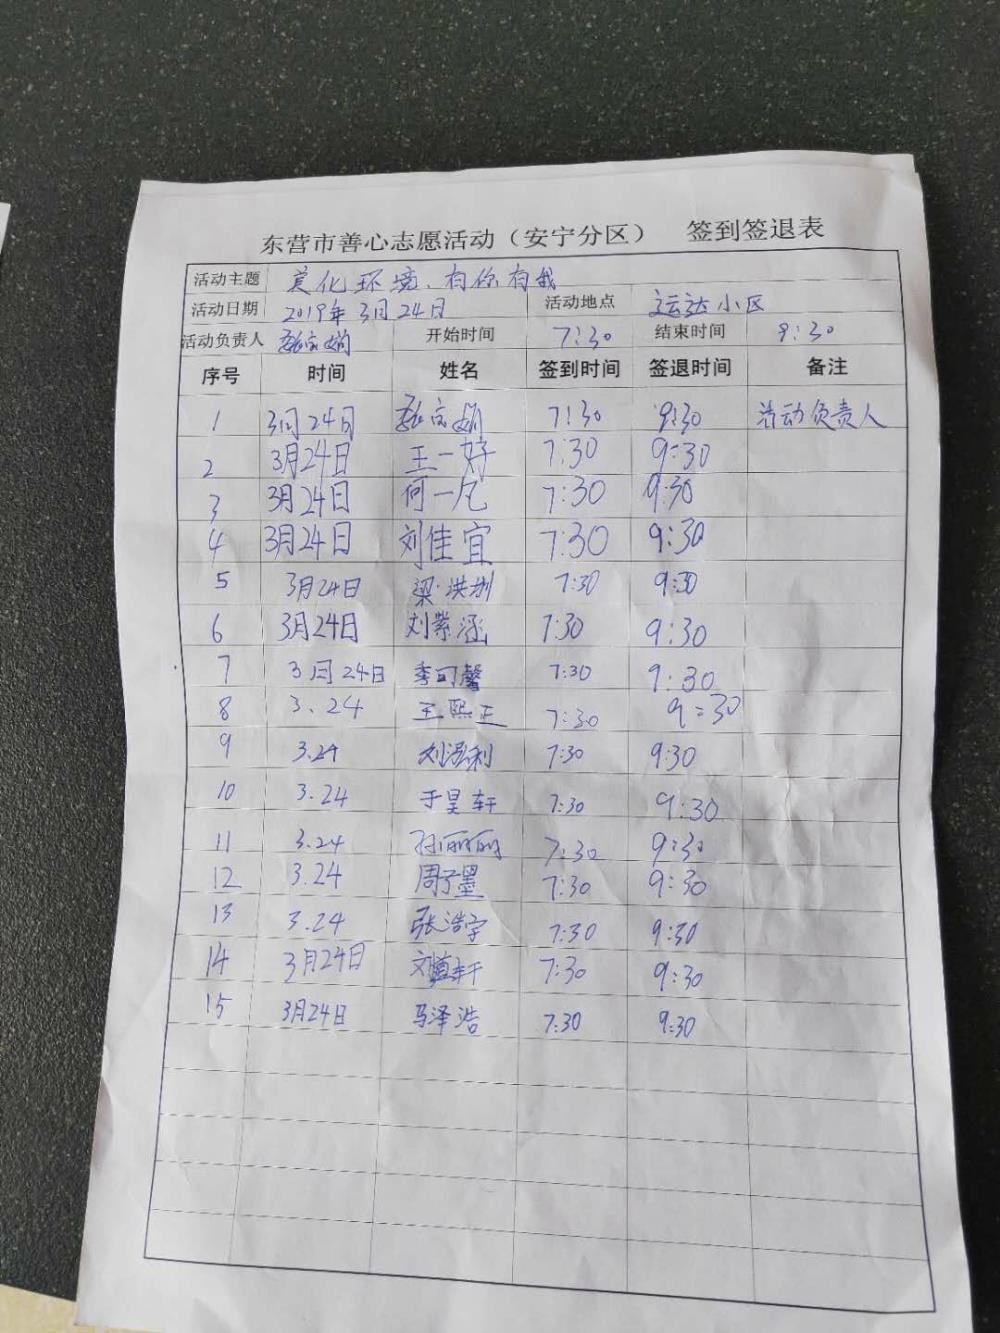 东营市善心志愿活动（安宁分区） 签到签退表
活动主题 美化环境、有你有我
活动日期 2019年3月24日 活动地点 运达小区
活动负责人 开始时间 7:30 结束时间 9:30
序号 时间 姓名 签到时间 签退时间 备注
1 3月24日 7:30 9:30 活动负责人
2 3月24日 王一好 7:30 9:30
3 3月24日 何一凡 7:30 9:30
4 3月24日 刘佳宜 7:30 9:30
5 3月24日 梁洪圳 7:30 9:30
6 3月24日 刘紫涵 7:30 9:30
7 3月24日 李可馨 7:30 9:30
8 3.24 王熙正 7:30 9:30
9 3.24 刘泓利 7:30 9:30
10 3.24 于昊轩 7:30 9:30
11 3.24 孙丽丽 7:30 9:30
12 3.24 周子墨 7:30 9:30
13 3.24 张浩宇 7:30 9:30
14 3月24日 7:30 9:30
15 3月24日 马泽浩 7:30 9:30